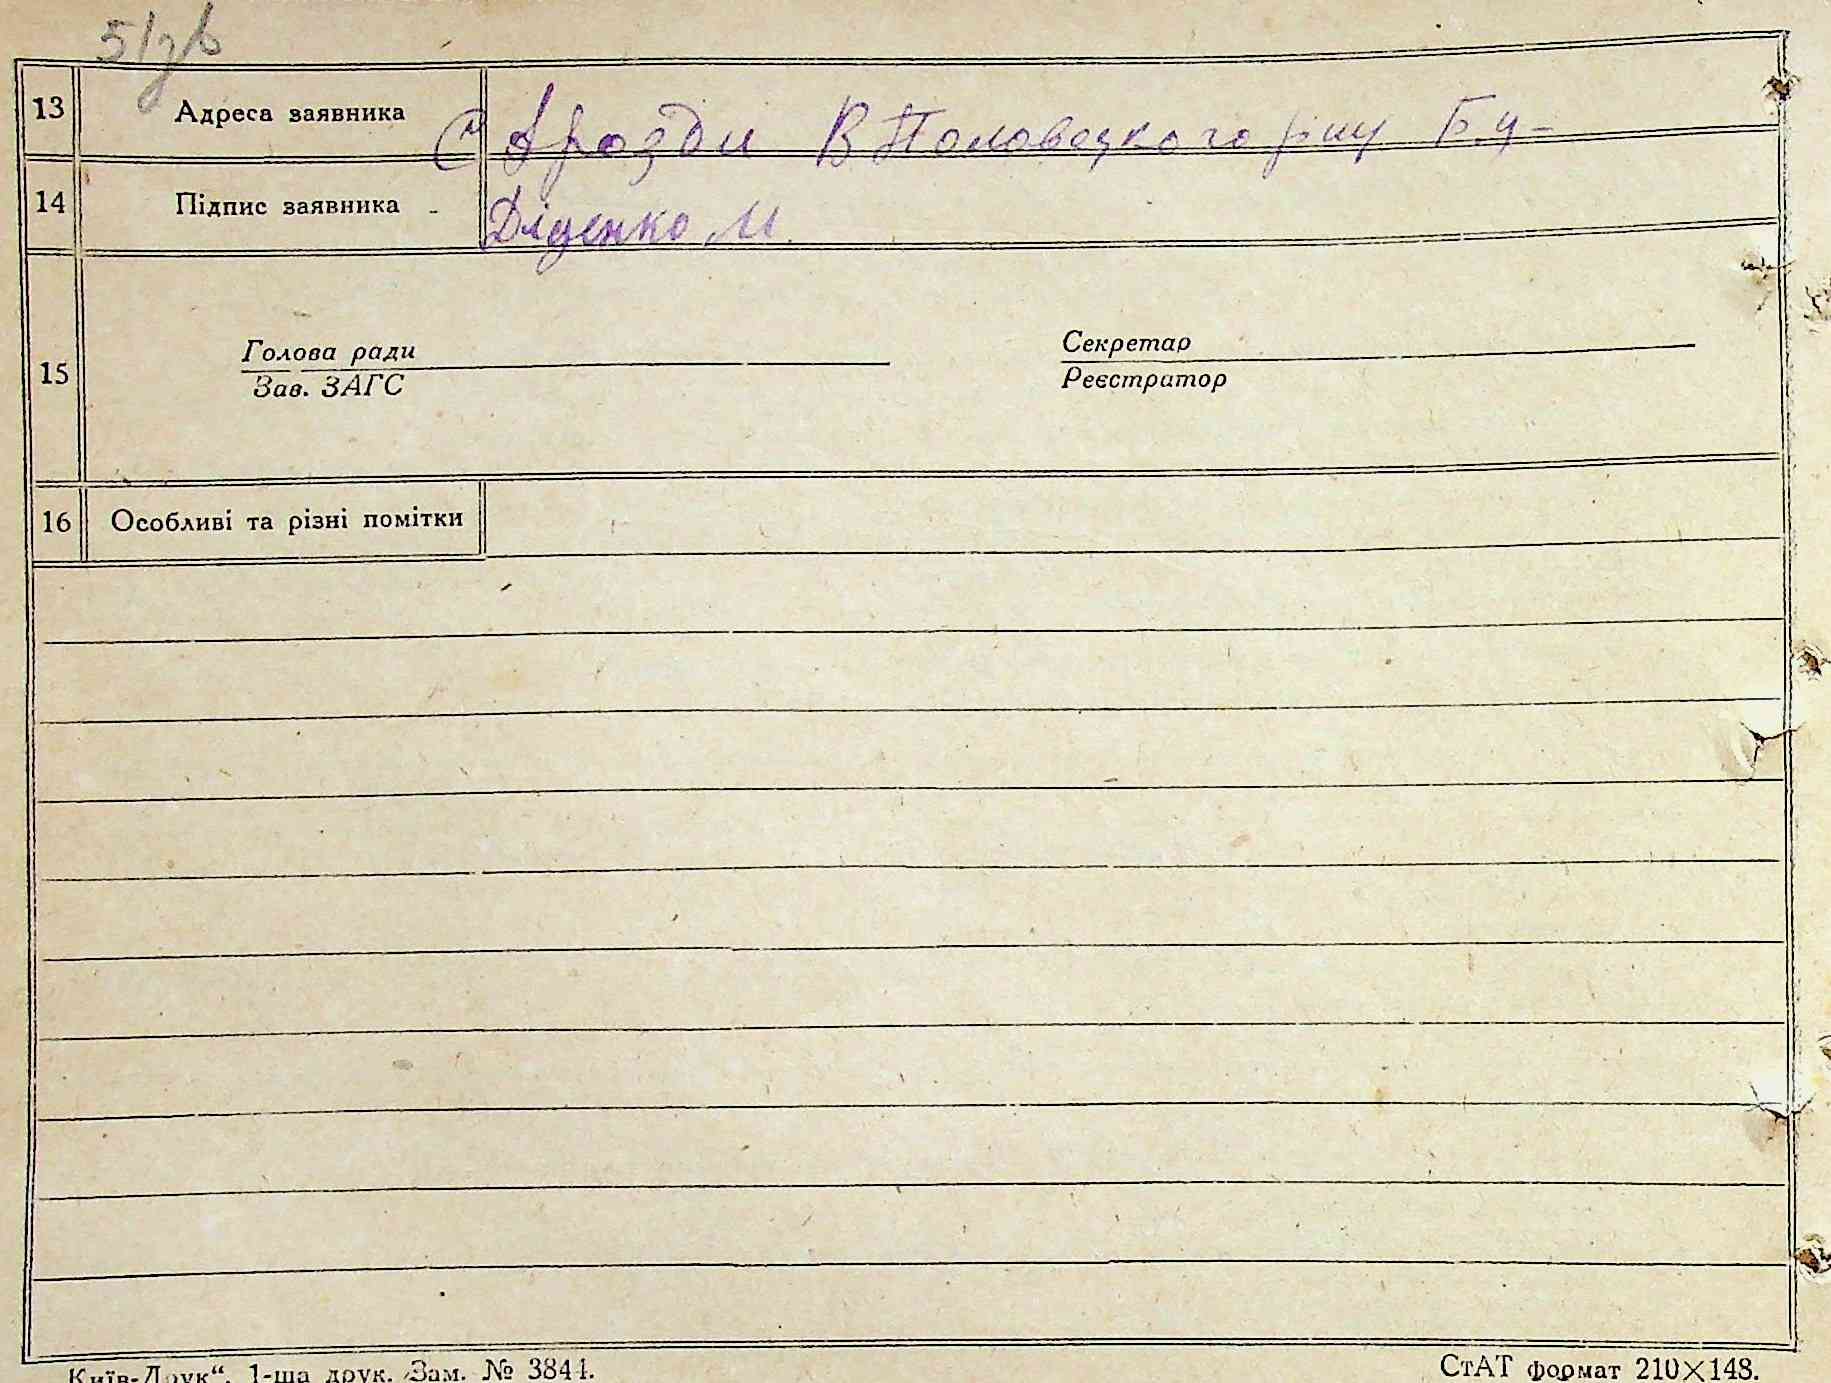 51зв
13 Адреса заявника с Дрозди В Половецкого р-ну Б.Ц-
14 Підпис заявника Діденко М.
15
Голова ради Секретар
Зав. ЗАГС Реєстратор
16 Особливі та різні помітки
Київ-Друк“. 1-ша друк. Зам. № 3844. СтАТ формат 210×148.